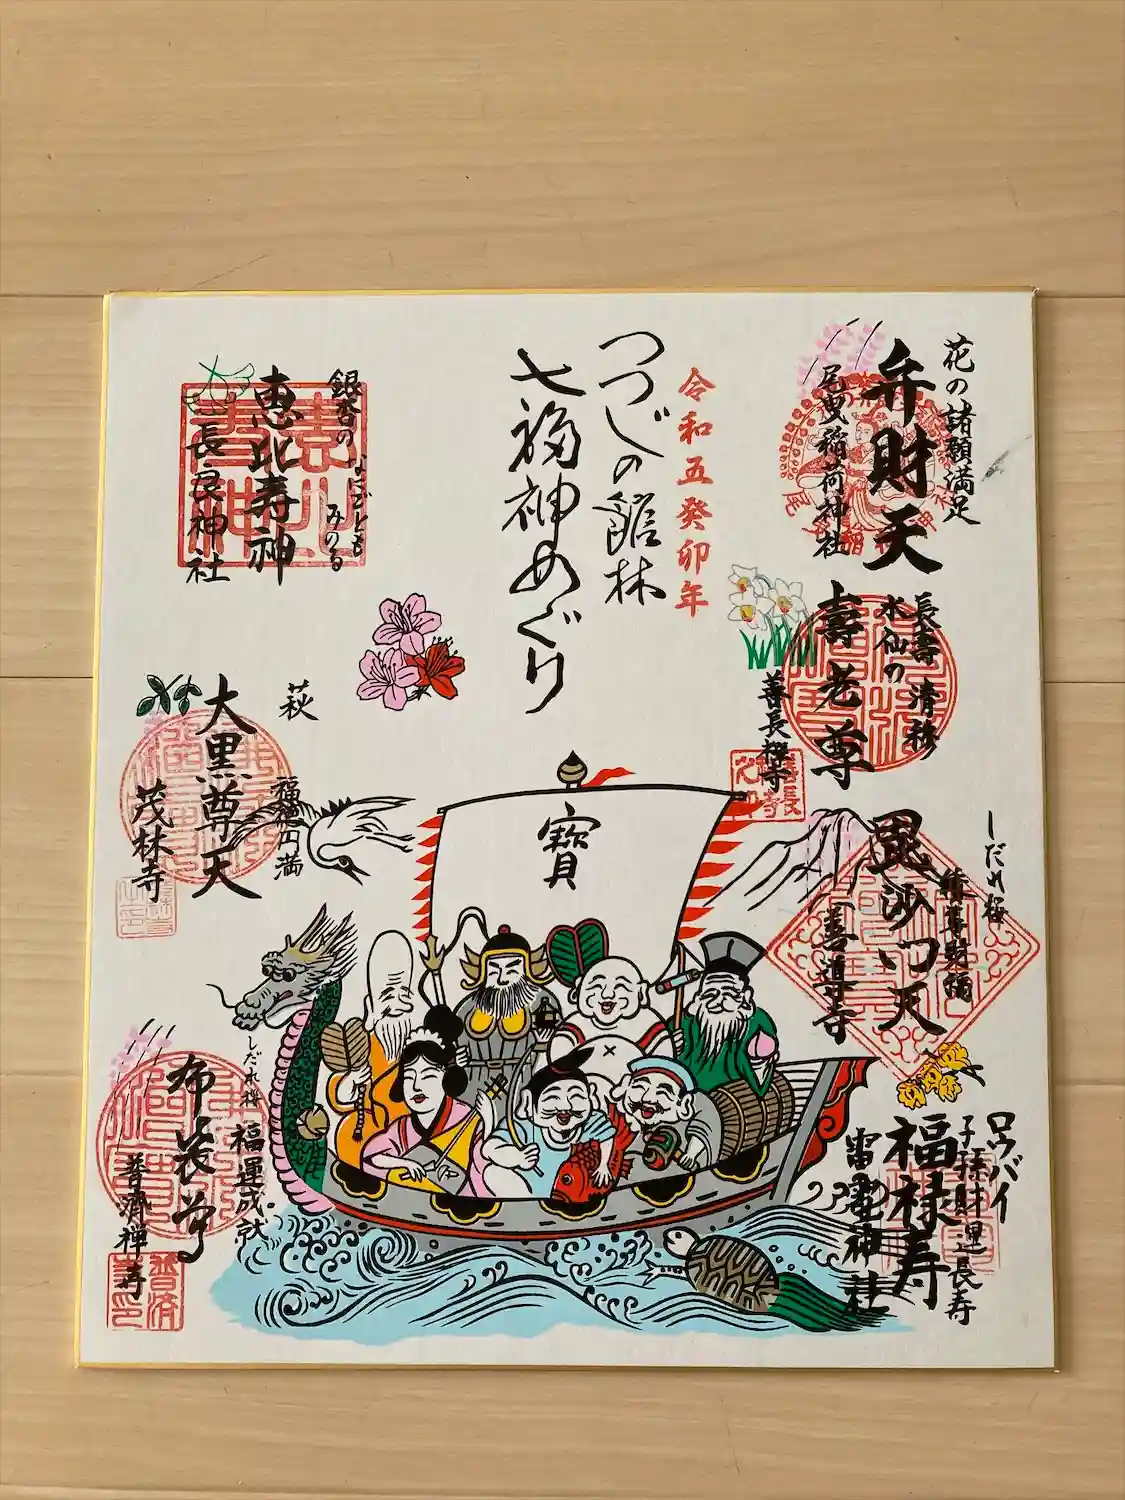 花の諸願満足
弁財天
尾曳稲荷神社
令和五癸卯年
つつじの館林
七福神めぐり
銀杏の なにごとも
みのる
恵比寿神
長良神社
長寿 清穆
水仙の
壽老尊
善長禅寺
しだれ桜
毘沙門天
善導寺
ロウバイ
子孫財運長寿
福禄寿
雷電神社
萩
福徳円満
大黒尊天
茂林寺
寶
しだれ桜
福運成就
布袋尊
普濟禅寺